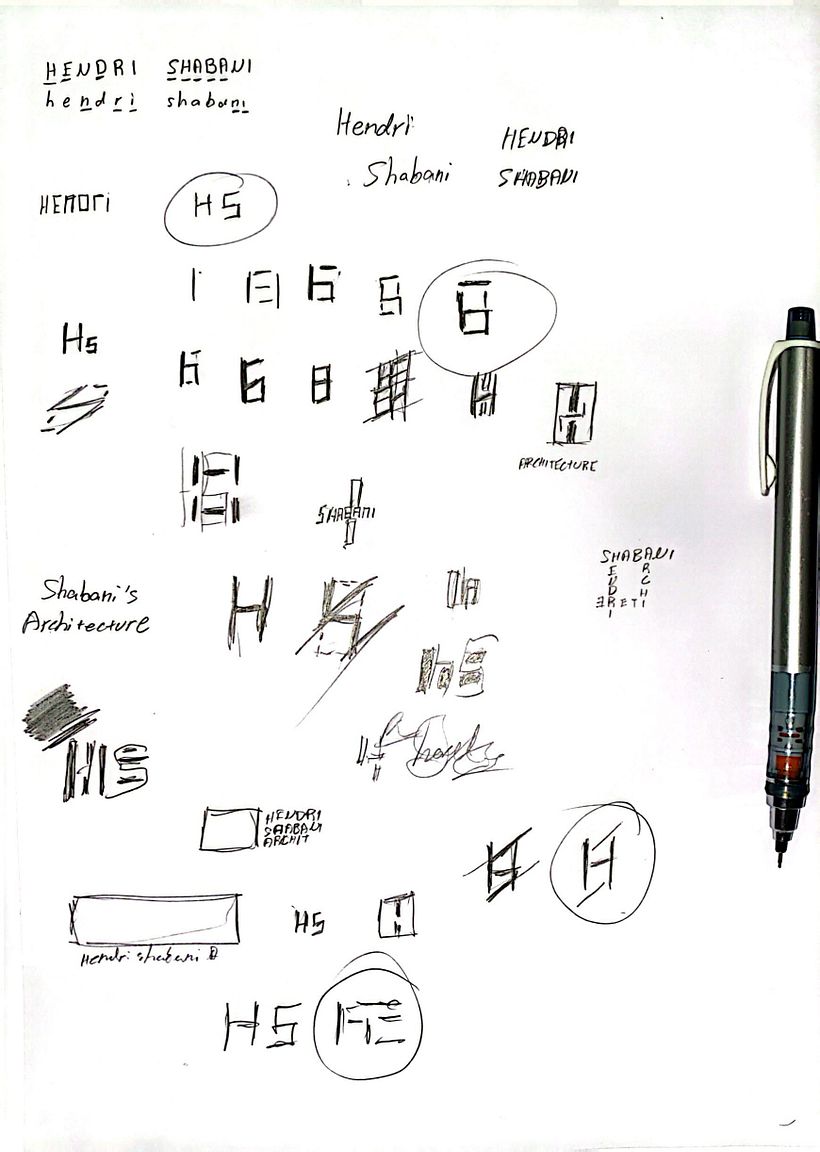 HENDRI SHABANI
hendri shabani
Hendri
Shabani
HENDRI
SHABANI
HENDRI
HS
Hs
ARCHITECTURE
SHABANI
Shabani's
Architecture
H
SHABANI
hs
HS
HENDRI
SHABANI
ARCHIT
H
Hendri shabani
HS
HS